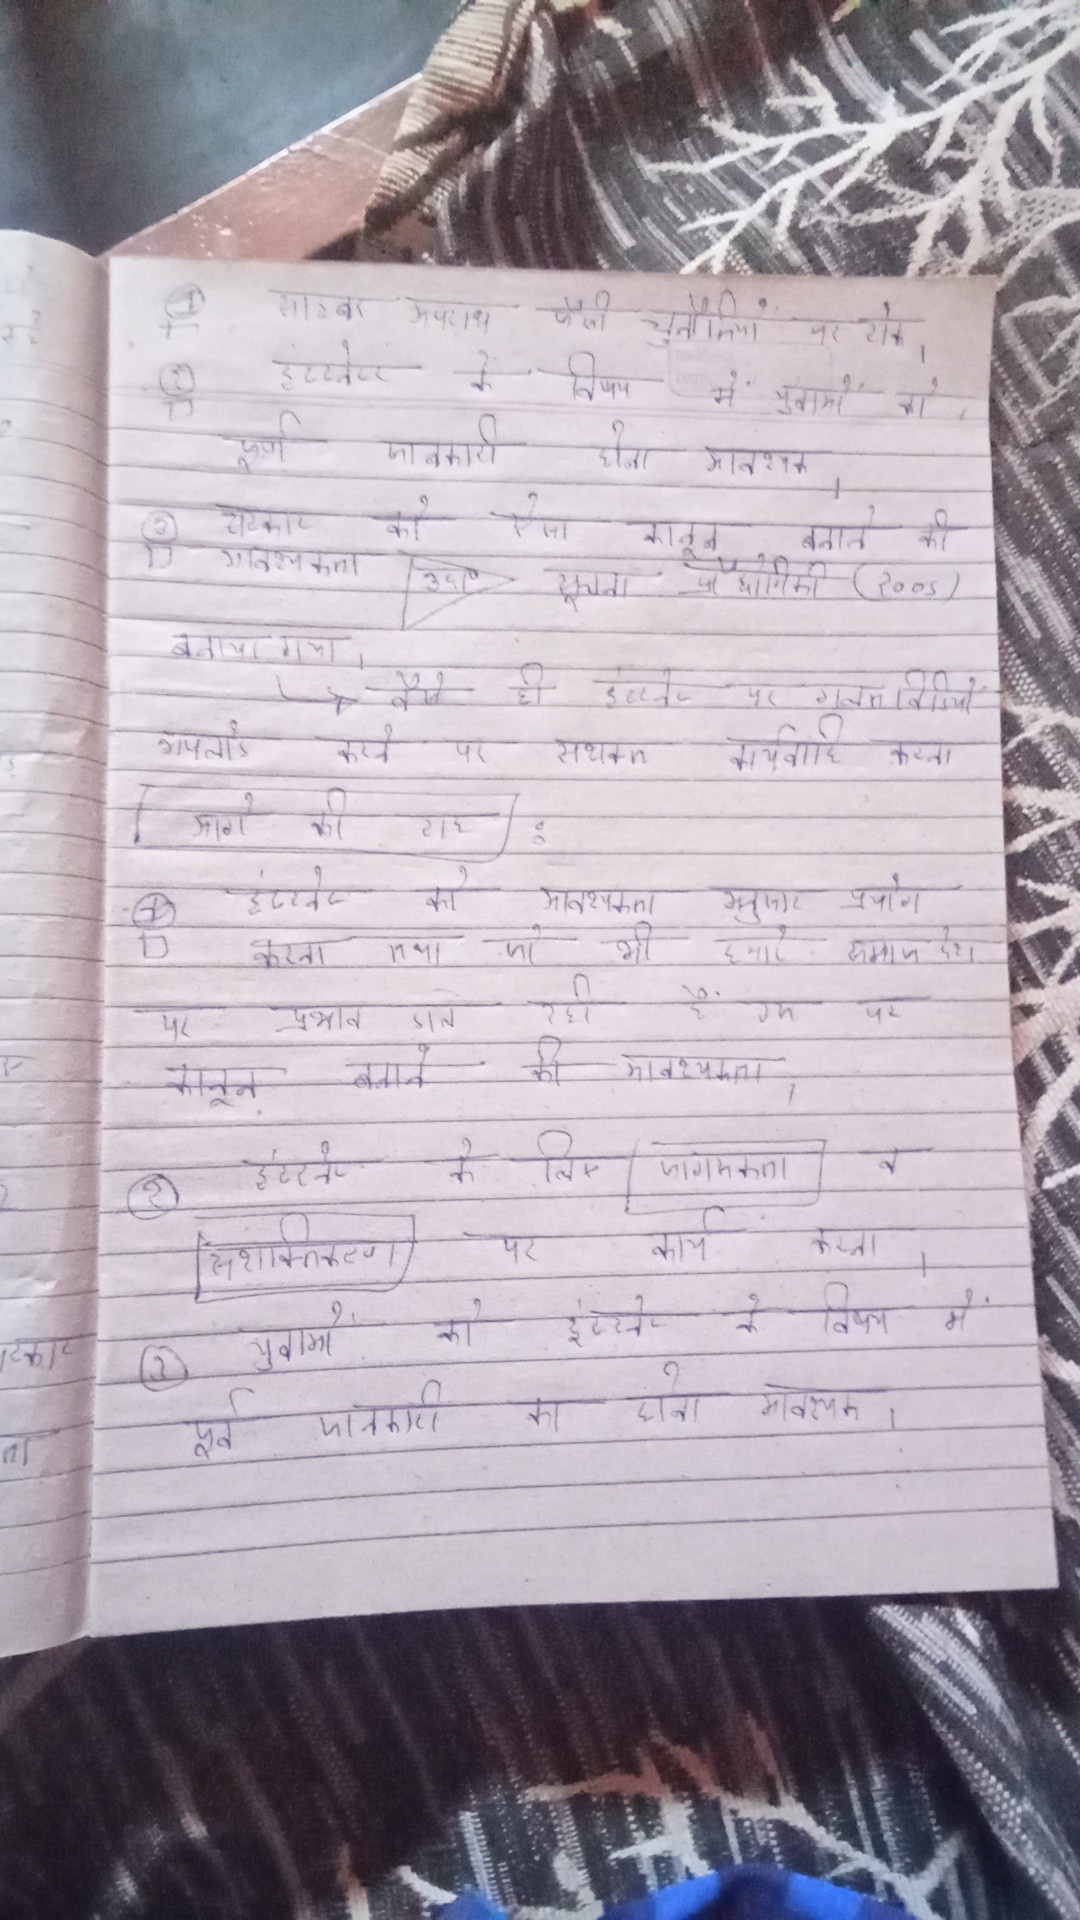 ① साइबर अपराध जैसी चुनौतियों पर रोक।
② इंटरनेट के विषय में युवाओं को
पूर्ण जानकारी होना आवश्यक।
③ सरकार को ऐसा कानून बनाने की
आवश्यकता उदा० सूचना प्रौद्योगिकी (2005)
बनाया गया।
↳ वैसे ही इंटरनेट पर गलत विडियो
अपलोड करने पर सशक्त कार्यवाहि करना
आगे की राह :
① इंटरनेट को आवश्यकता अनुसार प्रयोग
करना तथा जो भी हमारे समाज देश
पर प्रभाव डाल रही है उस पर
कानून बनाने की आवश्यकता।
② इंटरनेट के लिए जागरूकता व
सशक्तिकरण पर कार्य करना।
③ युवाओं को इंटरनेट के विषय में
पूर्व जानकारी का होना आवश्यक।